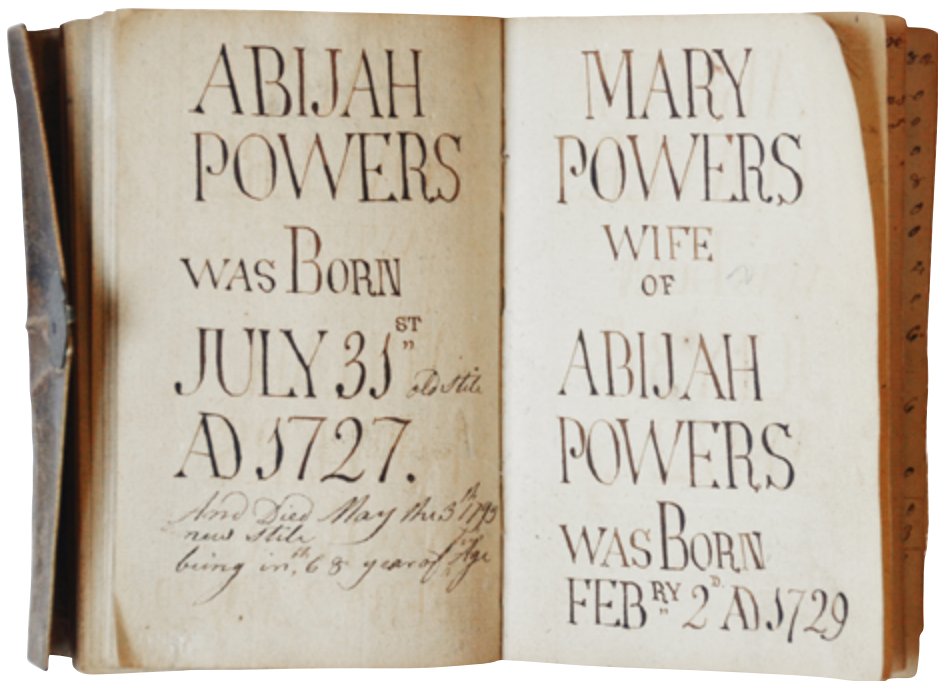 ABIJAH
POWERS
WAS BORN
JULY 31ST
old Stile
AD 1727.
And Died May the 3th 1793
new Stile
being in th 68 year of his Age
MARY
POWERS
WIFE
OF
ABIJAH
POWERS
WAS BORN
FEBRY 2D AD 1729